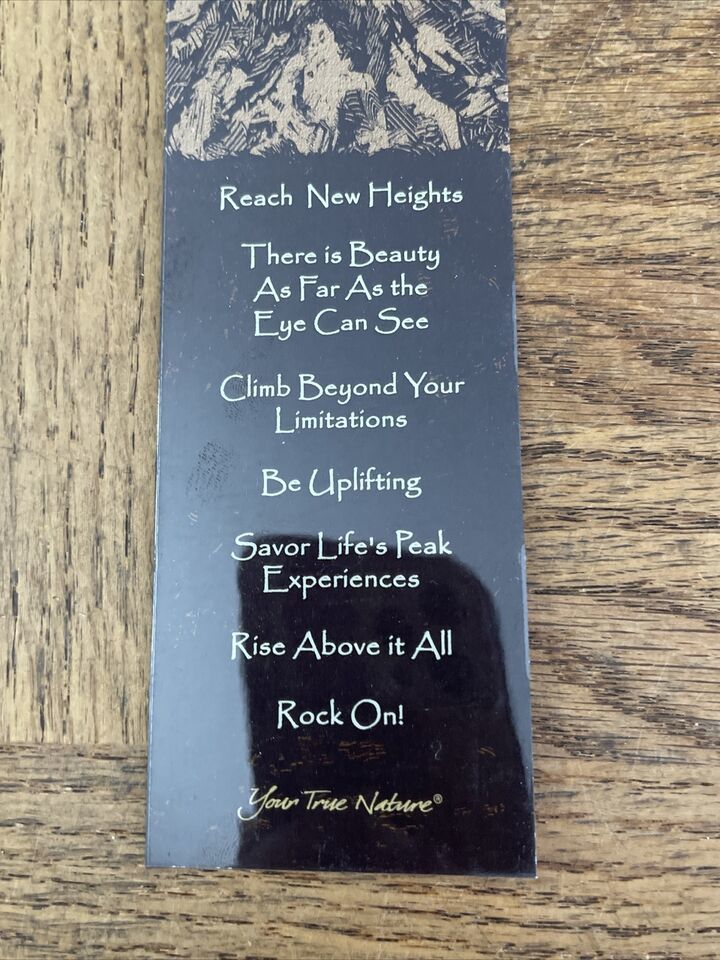 Reach New Heights
There is Beauty
As Far As the
Eye Can See
Climb Beyond Your
Limitations
Be Uplifting
Savor Life's Peak
Experiences
Rise Above it All
Rock On!
Your True Nature®